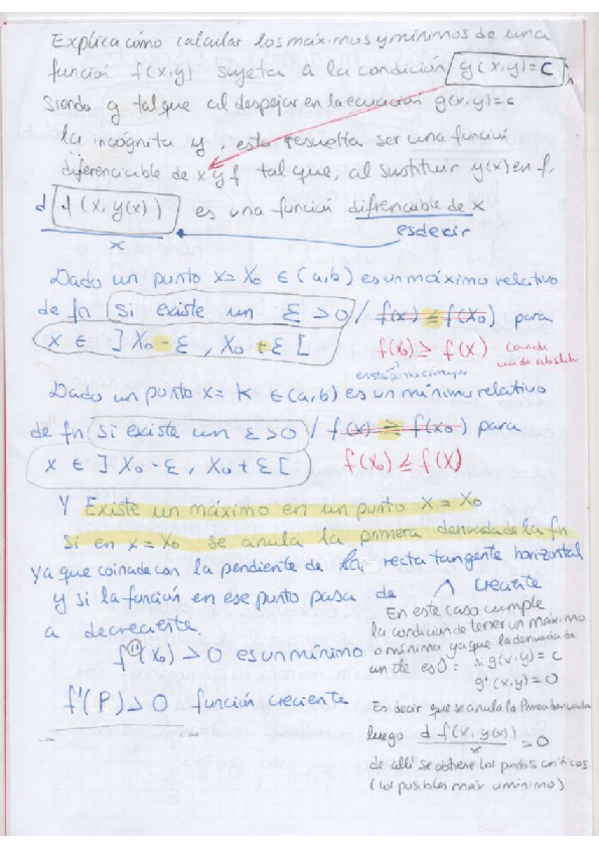 Explica cómo calcular los máximos y mínimos de una
función f(x,y) sujeta a la condición g(x,y)=c
Siendo g tal que al despejar en la ecuación g(x,y)=c
la incógnita y, esta resuelta ser una función
diferenciable de x y f tal que, al sustituir y(x) en f,
d f(x, y(x)) es una función difrenciable de x
x
es decir
Dado un punto x=x₀ ∈ (a,b) es un máximo relativo
de fn si existe un ε > 0 / f(x) ≤ f(x₀) para
x ∈ ] x₀-ε, x₀+ε [ f(x₀) ≥ f(x)
Dado un punto x= k ∈ (a,b) es un mínimo relativo
de fn si existe un ε>0 / f(x) ≥ f(x₀) para
x ∈ ] x₀-ε, x₀+ε [ f(x₀) ≤ f(x)
Y Existe un máximo en un punto x=x₀
si en x=x₀ se anula la primera derivada de la fn
ya que coincide con la pendiente de la recta tangente horizontal
y si la función en ese punto pasa de creciente
a decreciente
f''(x₀) > 0 es un mínimo
f'(P) > 0 función creciente
En este caso cumple
la condición de tener un máximo
o mínimo ya que la derivada de
un cte es 0: si g(x,y) = c
g'(x,y) = 0
Es decir que se anula la Primera derivada
luego d f(x, y(x)) = 0
x
de allí se obtiene los puntos críticos
(los posibles max o mínimo)